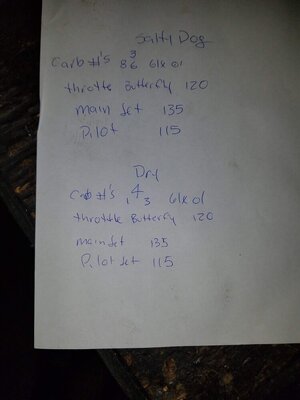 Salty Dog
Carb #'s 8 3 6 61x 01
throttle Butterfly 120
main Jet 135
Pilot 115
Dry
Carb #'s 1 4 3 61x 01
throttle Butterfly 120
main Jet 135
Pilot Jet 115